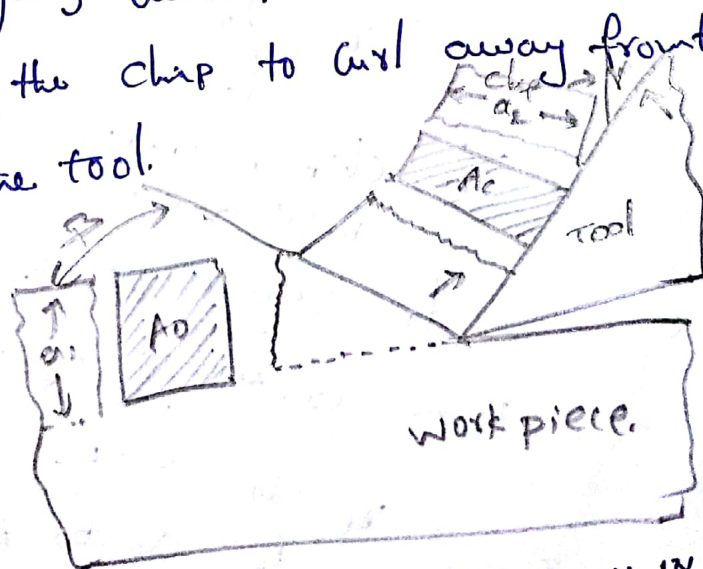 the chip to curl away from
tool.
chip
a₂
Ac
Tool
Ao
a₁
work piece.